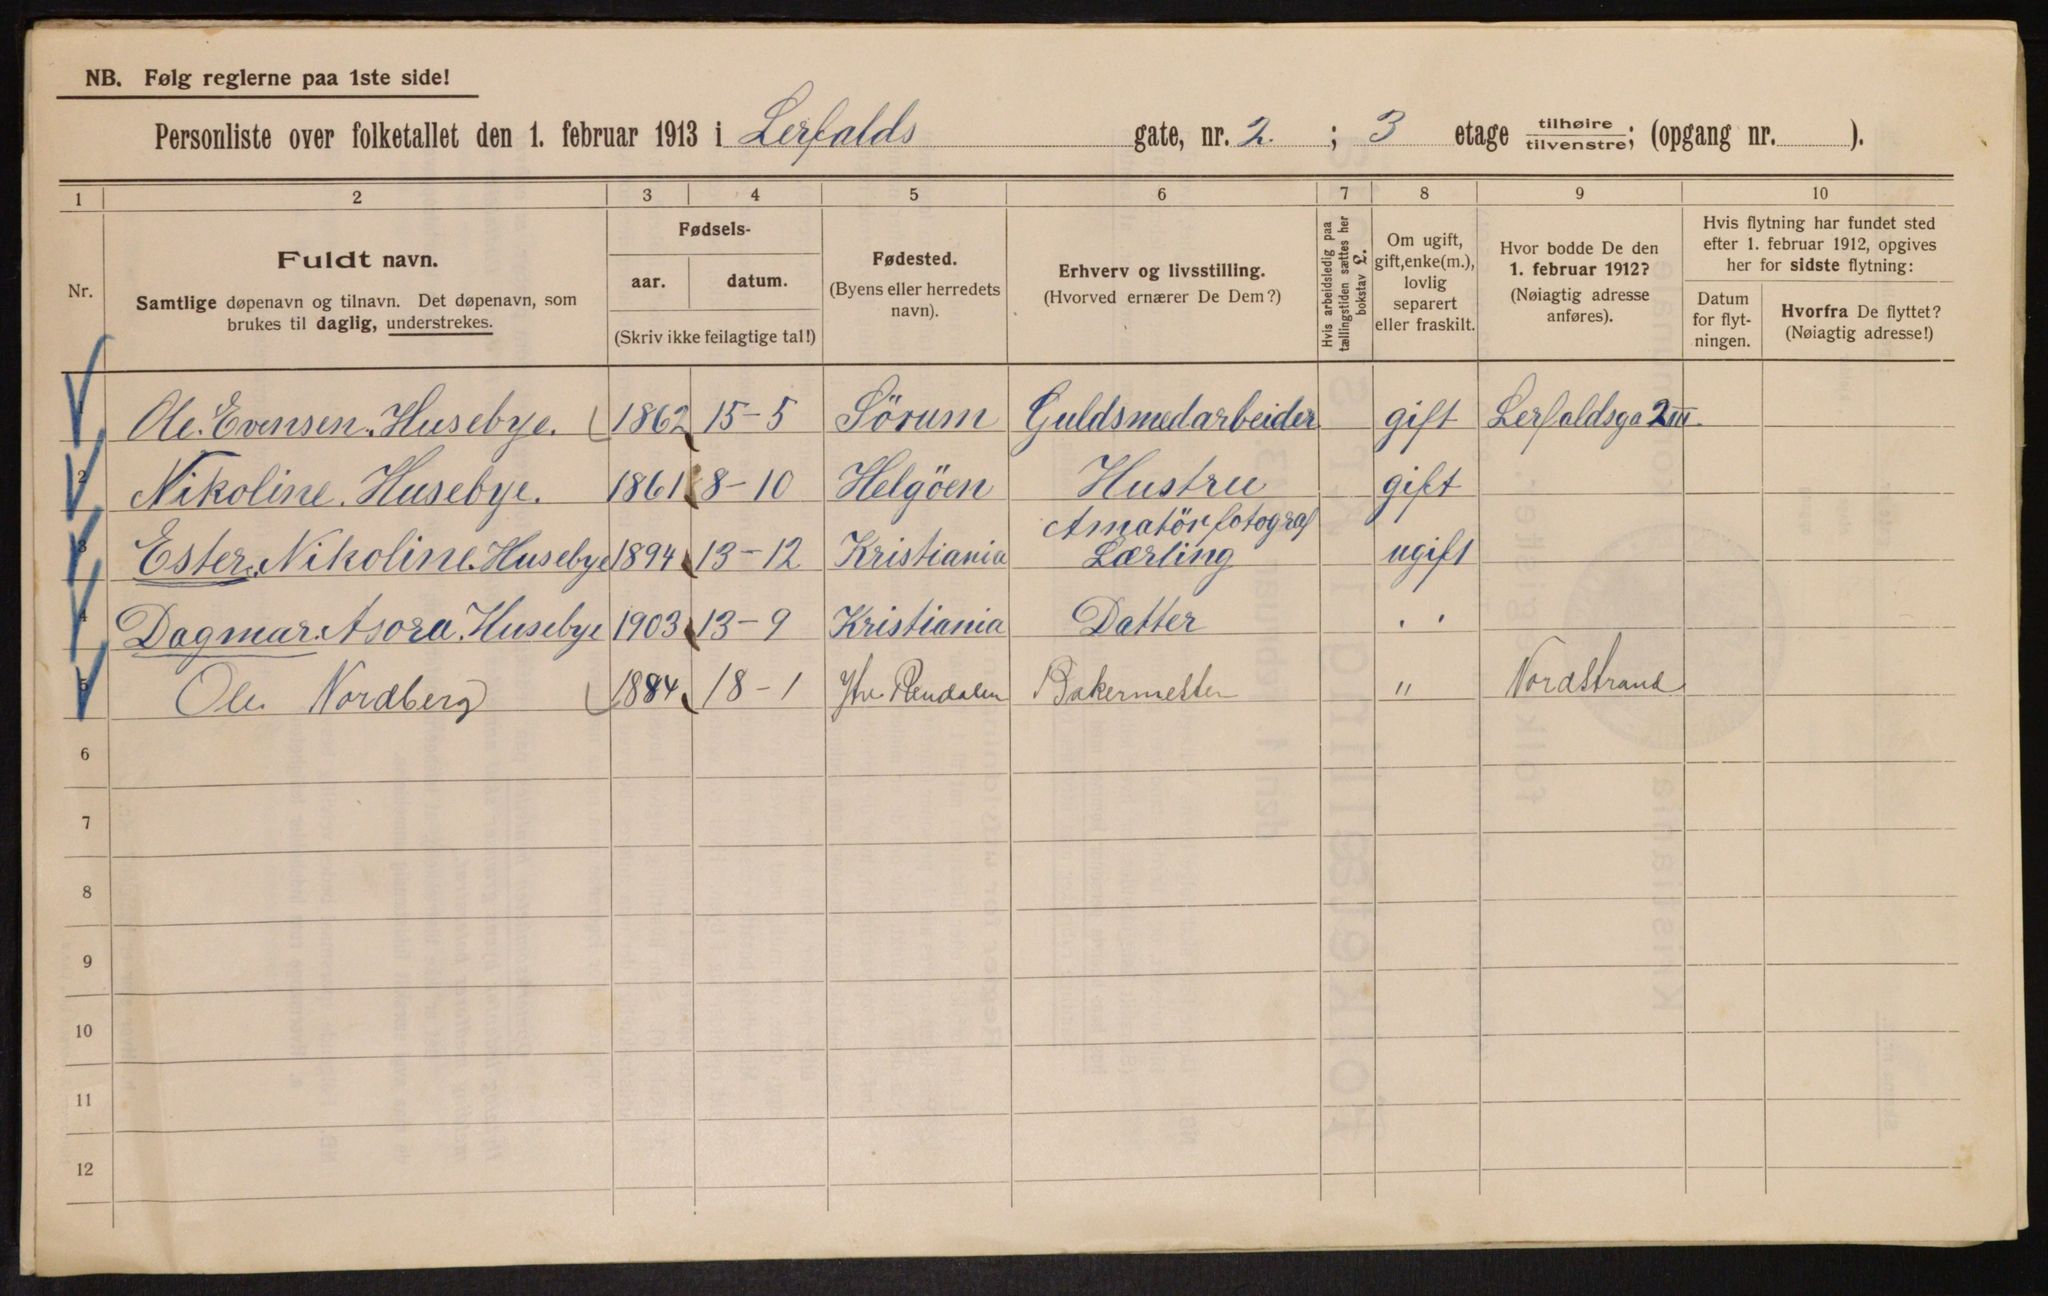 NB. Følg reglerne paa 1ste side!
Personliste over folketallet den 1. februar 1913 i Lerfalds gate, nr. 2. ; 3 etage tilhøire / tilvenstre; (opgang nr. ).
1 2 3 4 5 6 7 8 9 10
Nr.
Fuldt navn.
Samtlige døpenavn og tilnavn. Det døpenavn, som
brukes til daglig, understrekes.
Fødsels-
aar. datum.
(Skriv ikke feilagtige tal!)
Fødested.
(Byens eller herredets
navn).
Erhverv og livsstilling.
(Hvorved ernærer De Dem?)
Hvis arbeidsledig paa
tællingstiden sættes her
bokstav L.
Om ugift,
gift, enke(m.),
lovlig
separert
eller fraskilt.
Hvor bodde De den
1. februar 1912?
(Nøiagtig adresse
anføres).
Hvis flytning har fundet sted
efter 1. februar 1912, opgives
her for sidste flytning:
Datum
for flyt-
ningen.
Hvorfra De flyttet?
(Nøiagtig adresse!)
1 Ole. Evensen. Husebye. 1862 15-5 Sörum Guldsmedarbeider gift Lerfaldsga 2 III
2 Nikoline. Husebye. 1861 8-10 Helgöen Hustru gift
3 Ester. Nikoline. Husebye 1894 13-12 Kristiania Amatörfotograf
Lærling ugift
4 Dagmar. Asora. Husebye 1903 13-9 Kristiania Datter " "
5 Ole Nordberg 1884 18-1 Ytre Rendalen Bakermester " Nordstrand
6
7
8
9
10
11
12